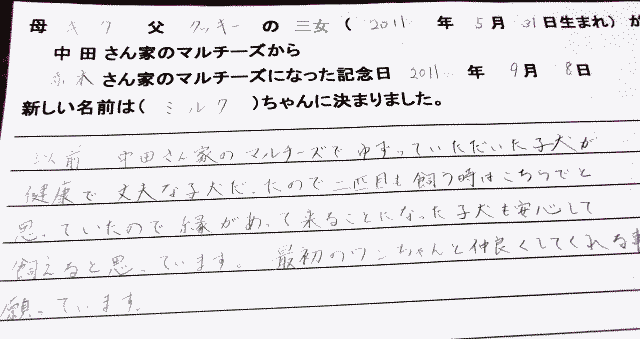 母 キク 父 クッキー の 三女 ( 2011 年 5 月 31 日生まれ) が
中田さん家のマルチーズから
さん家のマルチーズになった記念日 2011 年 9月 8日
新しい名前は( ミルク )ちゃんに決まりました。
以前 中田さん家のマルチーズでゆずっていただいた子犬が
健康で丈夫な子犬だったので二匹目も飼う時はこちらでと
思っていたので縁があって来ることになった子犬も安心して
飼えると思っています。 最初のワンちゃんと仲良くしてくれる事
願っています。